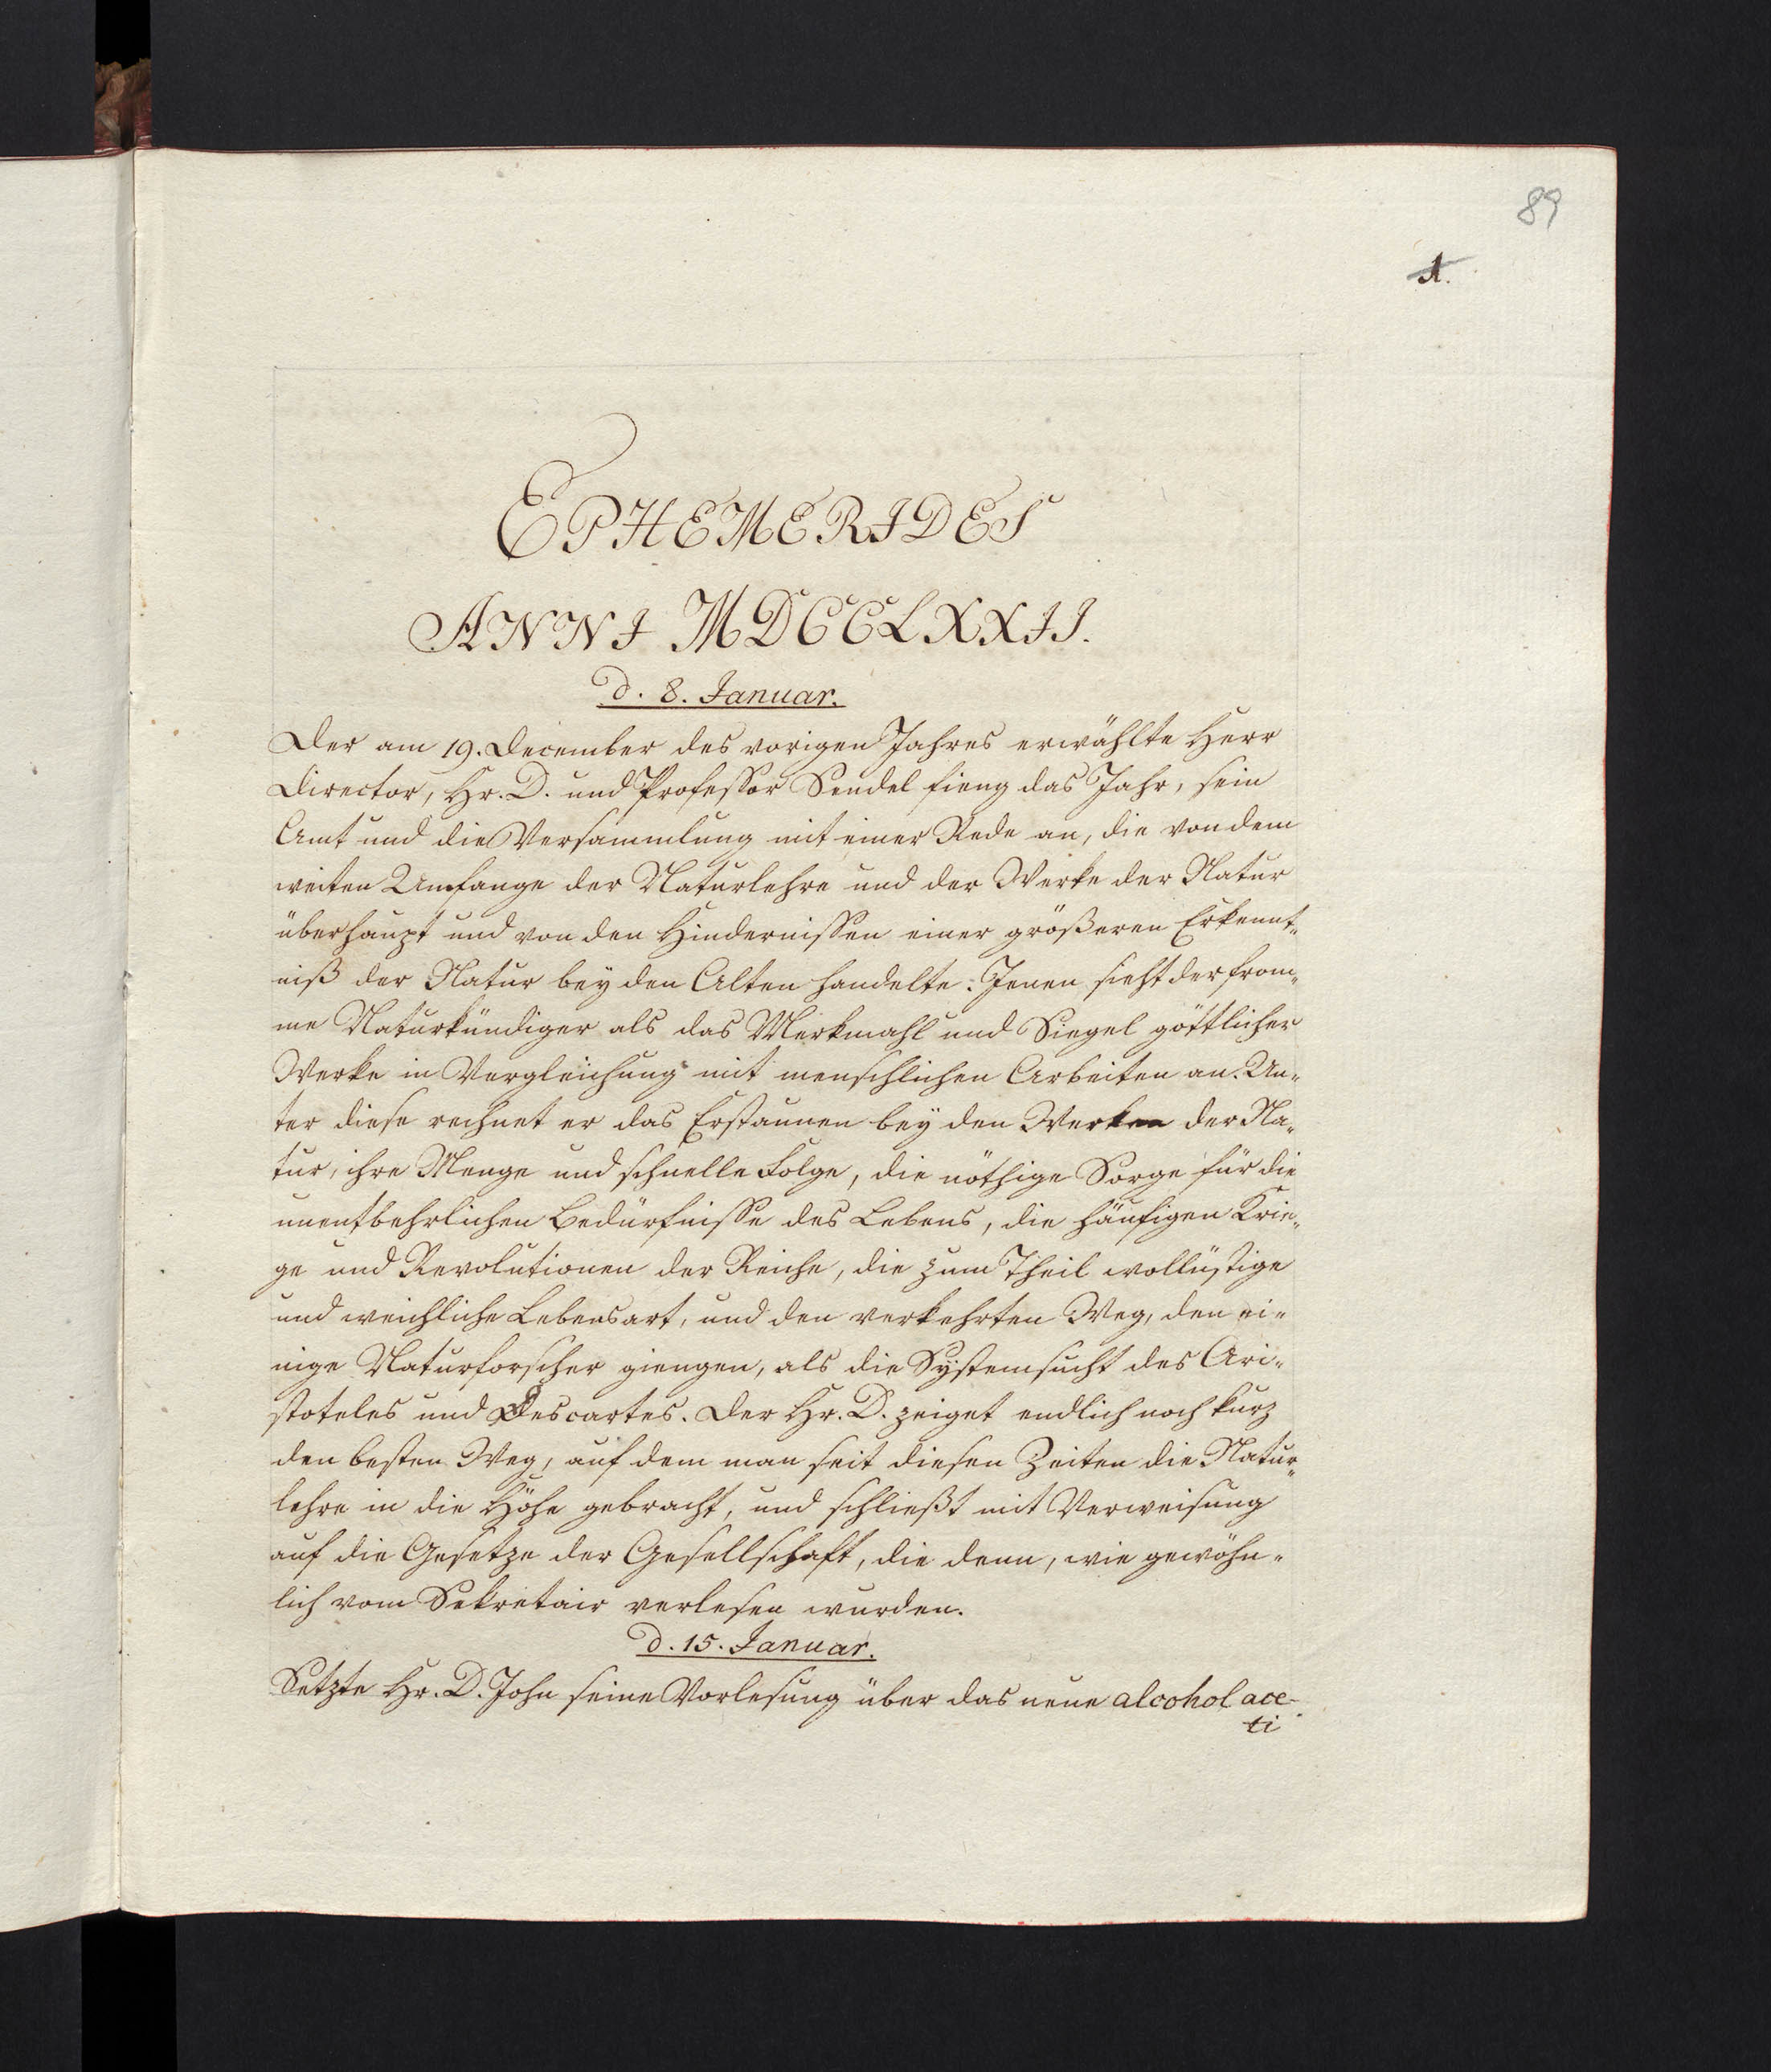 89
1.
EPHEMERIDES
ANNI MDCCLXXII.
d. 8. Januar.
Der am 19. December des vorigen Jahres erwählte Herr
Director, Hr. D. und Professor Sendel fieng das Jahr, sein
Amt und die Versammlung mit einer Rede an, die von dem
weiten Umfange der Naturlehre und der Werke der Natur
überhaupt und von den Hindernissen einer größeren Erkennt-
niß der Natur bey den Alten handelte: Jenen sieht der from-
me Naturkündiger als das Merkmahl und Siegel göttlicher
Werke in Vergleichung mit menschlichen Arbeiten an. Un-
ter diese rechnet er das Erstaunen bey den Werken der Na-
tur, ihre Menge und schnelle Folge, die nöthige Sorge für die
unentbehrlichen Bedürfnisse des Lebens, die häufigen Krie-
ge und Revolutionen der Reiche, die zum Theil wollüstige
und weichliche Lebensart, und den verkehrten Weg, den ei-
nige Naturforscher giengen, als die Systemsucht des Ari-
stoteles und Descartes. Der Hr. D. zeiget endlich noch kurz
den besten Weg, auf dem man seit diesen Zeiten die Natur-
lehre in die Höhe gebracht, und schließt mit Verweisung
auf die Gesetze der Gesellschaft, die denn, wie gewöhn-
lich vom Sekretair verlesen wurden.
d. 15. Januar.
Setzte Hr. D. John seine Vorlesung über das neue alcohol ace-
ti